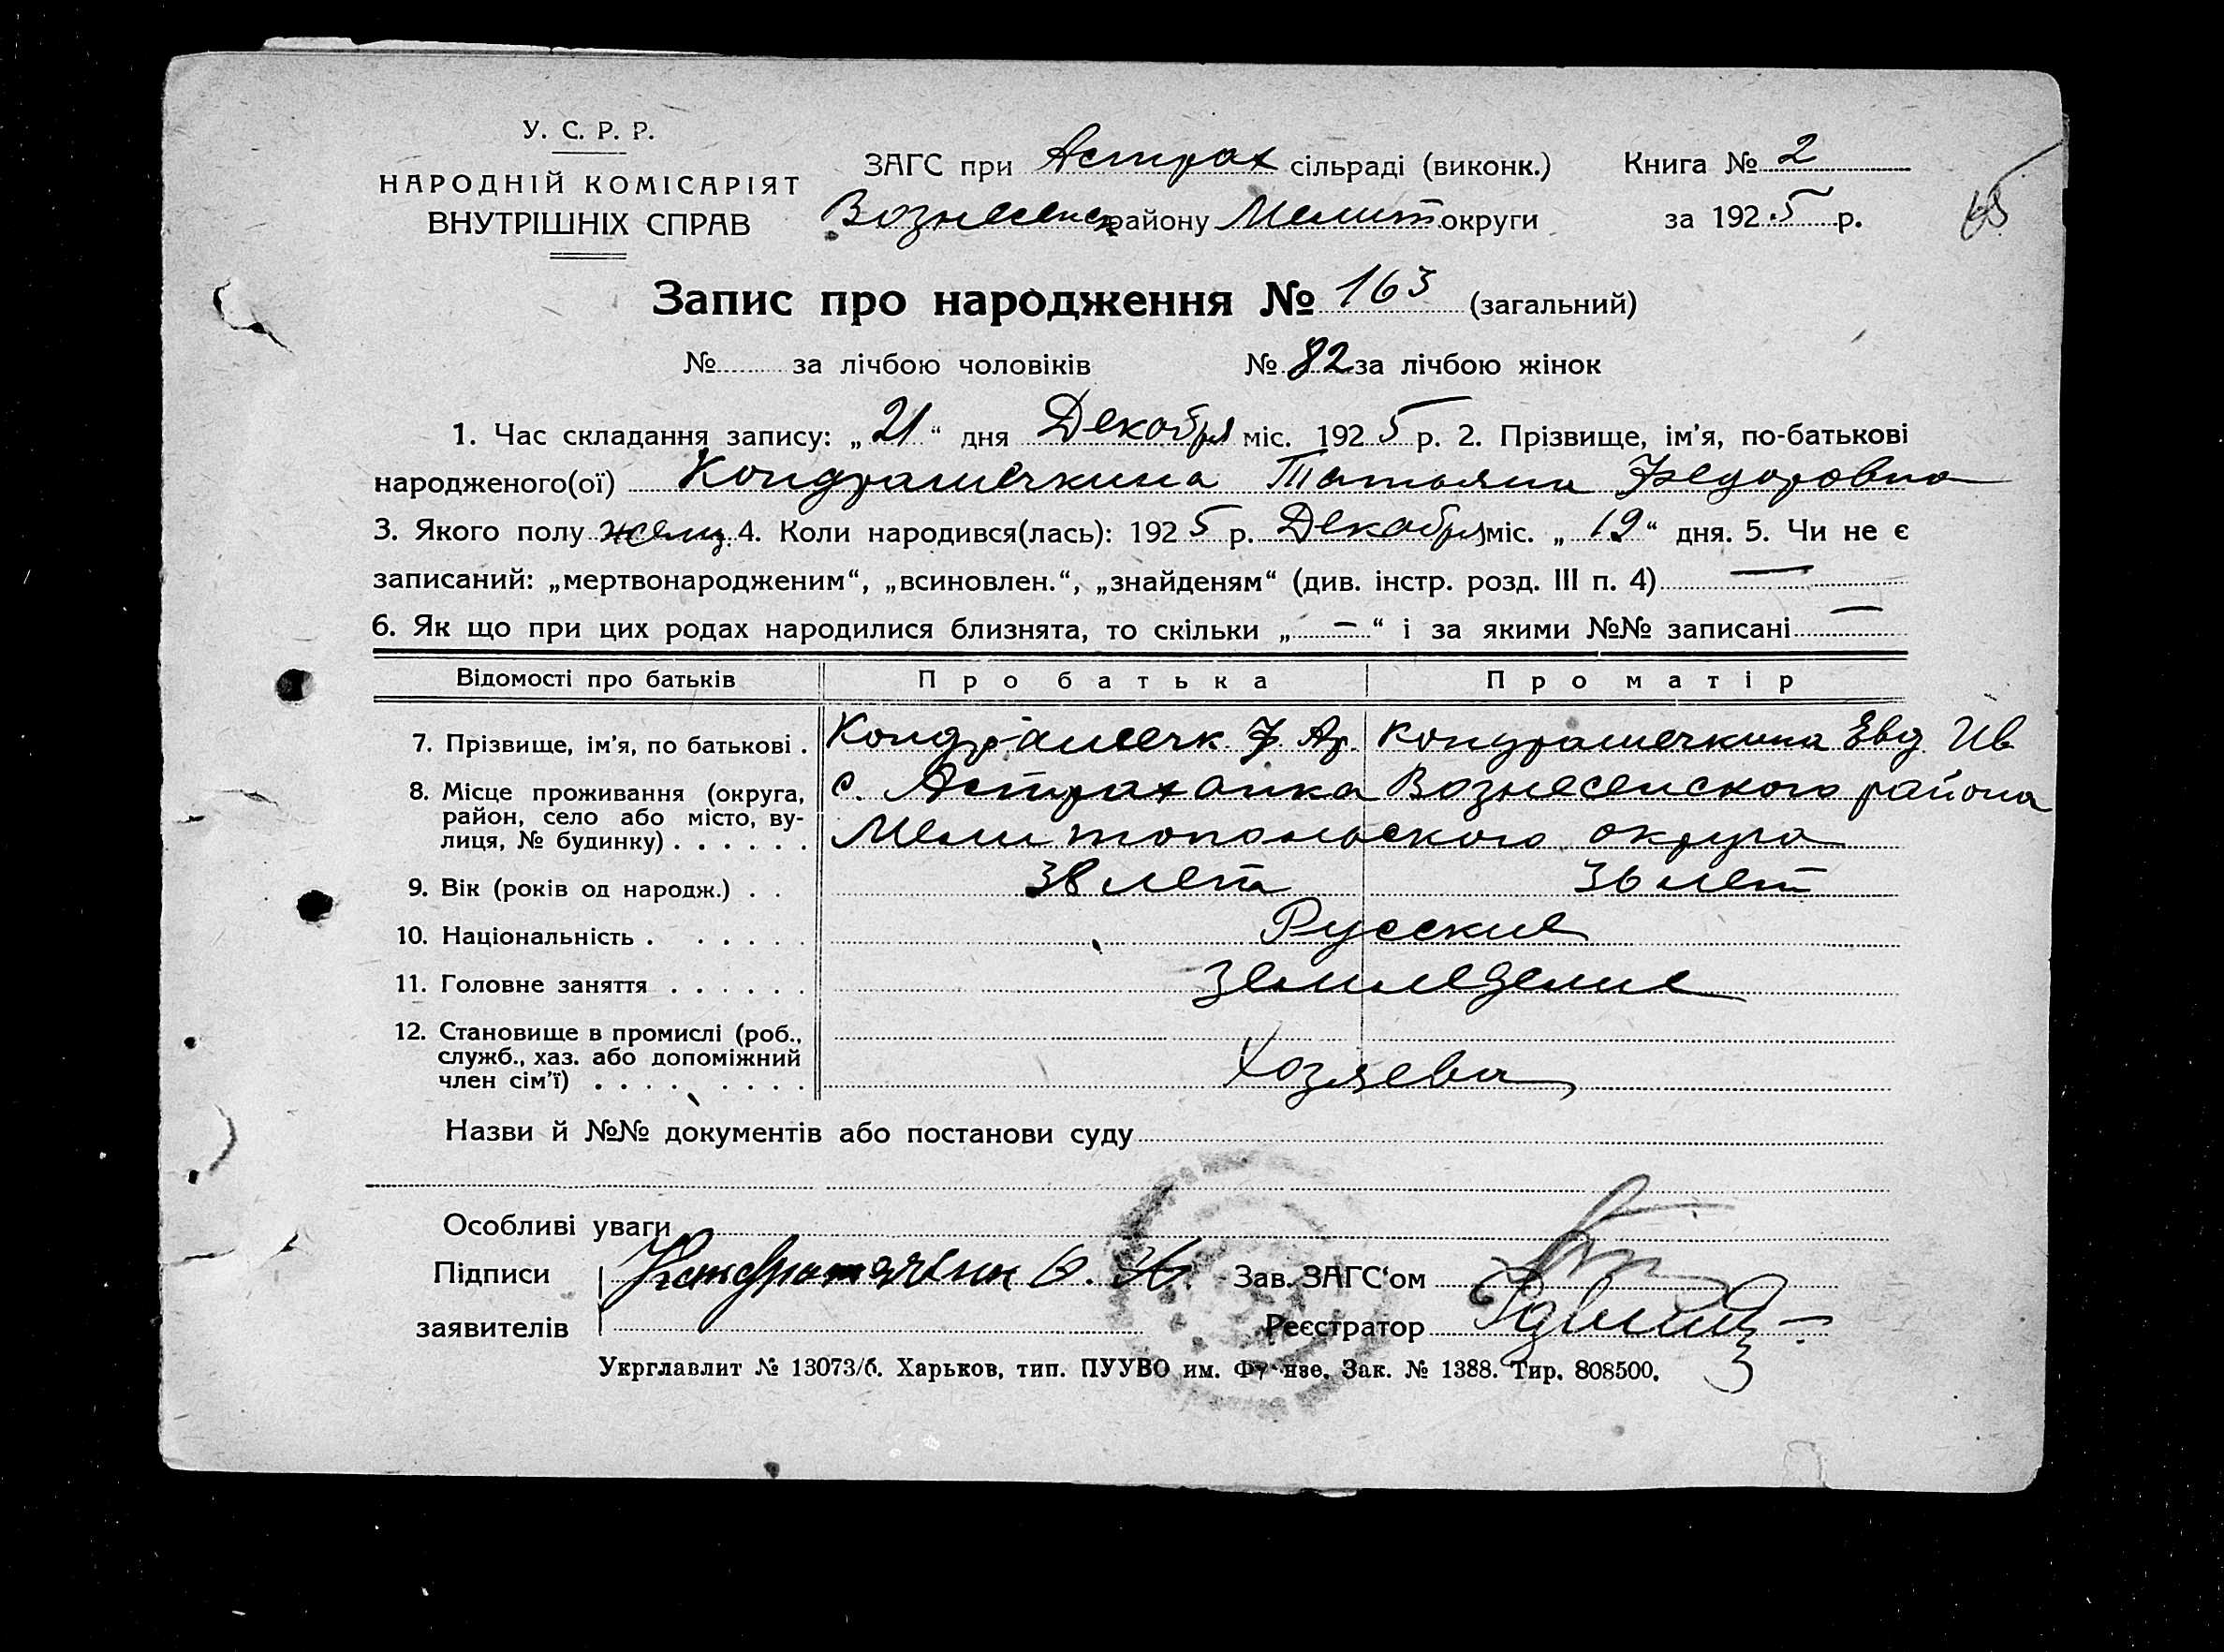 У. С. Р. Р.
НАРОДНІЙ КОМІСАРІЯТ
ВНУТРІШНІХ СПРАВ
ЗАГС при Астрах сільраді (виконк.)
Вознесенск району Мелит округи
Книга № 2
за 1925 р.
Запис про народження № 163 (загальний)
№ за лічбою чоловіків № 82 за лічбою жінок
1. Час складання запису: „21“ дня Декабря міс. 1925 р. 2. Прізвище, ім'я, по-батькові
народженого(ої) Кондрашечкина Татьяна Федоровна
3. Якого полу женц. 4. Коли народився(лась): 1925 р. Декабря міс. „19“ дня. 5. Чи не є
записаний: „мертвонародженим“, „всиновлен.“, „знайденям“ (див. інстр. розд. III п. 4) —
6. Як що при цих родах народилися близнята, то скільки „—“ і за якими №№ записані —
Відомості про батьків Про батька Про матір
7. Прізвище, ім'я, по батькові . Кондрашечк. Ф. Ар. Кондрашечкина Евд Ив
8. Місце проживання (округа, район, село або місто, вулиця, № будинку) . . . . . . с. Астраханка Вознесенского района
Мелитопольского округа
9. Вік (років од народж.) . . 38 лет 36 лет
10. Національність . . . . . . Русские
11. Головне заняття . . . . . . Земледелие
12. Становище в промислі (роб.,
служб., хаз. або допоміжний
член сім'ї) . . . . . . . . Хозяева
Назви й №№ документів або постанови суду
Особливі уваги
Підписи Кондрашечкин
заявителів
Зав. ЗАГС'ом
Реєстратор
Укрглавлит № 13073/б. Харьков, тип. ПУУВО им. Фрунзе. Зак. № 1388. Тир. 808500.